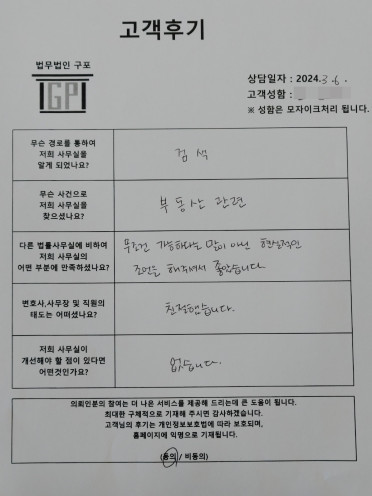 고객후기
법무법인 구포
GP
상담일자 : 2024. 3. 6.
고객성함 :
※ 성함은 모자이크처리 됩니다.
무슨 경로를 통하여
저희 사무실을
알게 되었나요?
검색
무슨 사건으로
저희 사무실을
찾으셨나요?
부동산 관련
다른 법률사무실에 비하여
저희 사무실의
어떤 부분에 만족하셨나요?
무조건 가능하다는 말이 아닌 현실적인
조언을 해주셔서 좋았습니다.
변호사,사무장 및 직원의
태도는 어떠셨나요?
친절했습니다.
저희 사무실이
개선해야 할 점이 있다면
어떤것인가요?
없습니다.
의뢰인분의 참여는 더 나은 서비스를 제공해 드리는데 큰 도움이 됩니다.
최대한 구체적으로 기재해 주시면 감사하겠습니다.
고객님의 후기는 개인정보보호법에 따라 보호되며,
홈페이지에 익명으로 기재됩니다.
(동의 / 비동의)